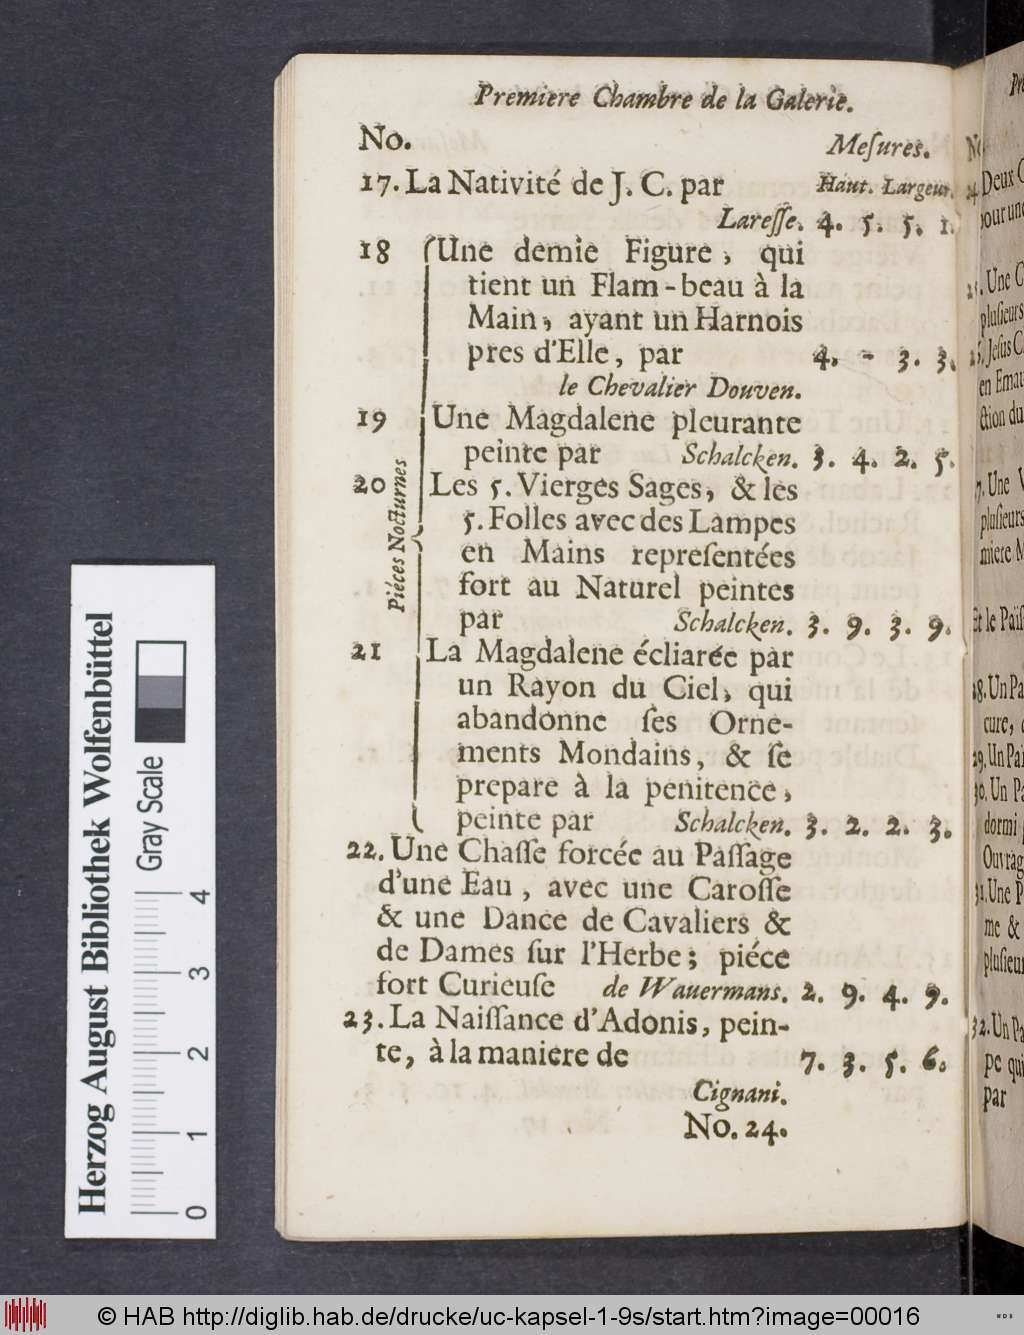 Premiere Chambre de la Galerie.
No. Meſures.
17. La Nativité de J. C. par Haut. Largeur.
Lareſſe. 4. 5. 5. 1.
18 Une demie Figure, qui
tient un Flam-beau à la
Main, ayant un Harnois
pres d'Elle, par 4. - 3. 3.
le Chevalier Douven.
19 Une Magdalene pleurante
peinte par Schalcken. 3. 4. 2. 5.
Piéces Nocturnes
20 Les 5. Vierges Sages, & les
5. Folles avec des Lampes
en Mains repreſentées
fort au Naturel peintes
par Schalcken. 3. 9. 3. 9.
21 La Magdalene écliarée par
un Rayon du Ciel, qui
abandonne ſes Orne-
ments Mondains, & ſe
prepare à la penitence,
peinte par Schalcken. 3. 2. 2. 3.
22. Une Chaſſe forcée au Paſſage
d'une Eau, avec une Caroſſe
& une Dance de Cavaliers &
de Dames ſur l'Herbe; piéce
fort Curieuſe de Wauermans. 2. 9. 4. 9.
23. La Naiſſance d'Adonis, pein-
te, à la maniere de 7. 3. 5. 6.
Cignani.
No. 24.
Deux
pour une
Une
pluſieurs
Jeſus
en
ction du
Une
pluſieurs
miere
Et le
Un
cure,
29. Un
30. Un
dormi
31. Une
me &
32. Un
pe qui
par
Herzog August Bibliothek Wolfenbüttel
Gray Scale
0 1 2 3 4
© HAB http://diglib.hab.de/drucke/uc-kapsel-1-9s/start.htm?image=00016